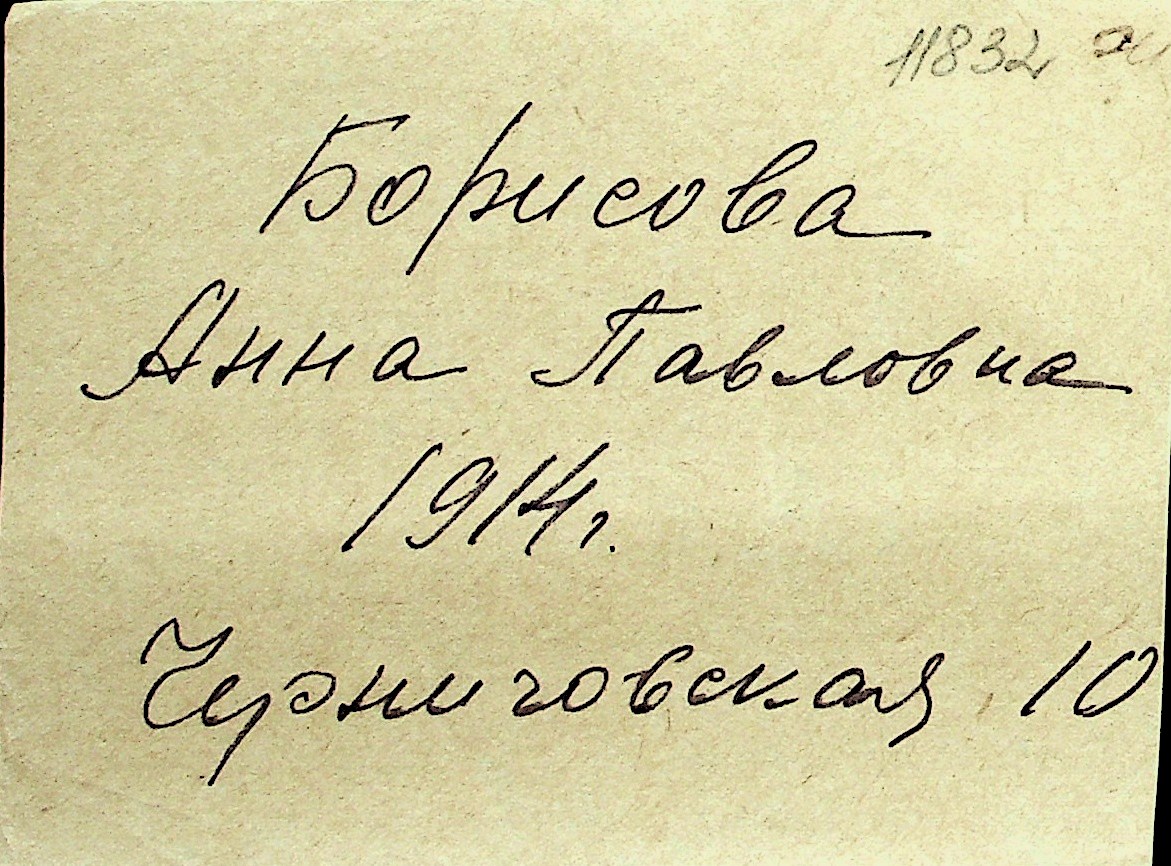 11832
Борисова
Анна Павловна
1914г.
Черниговская 10